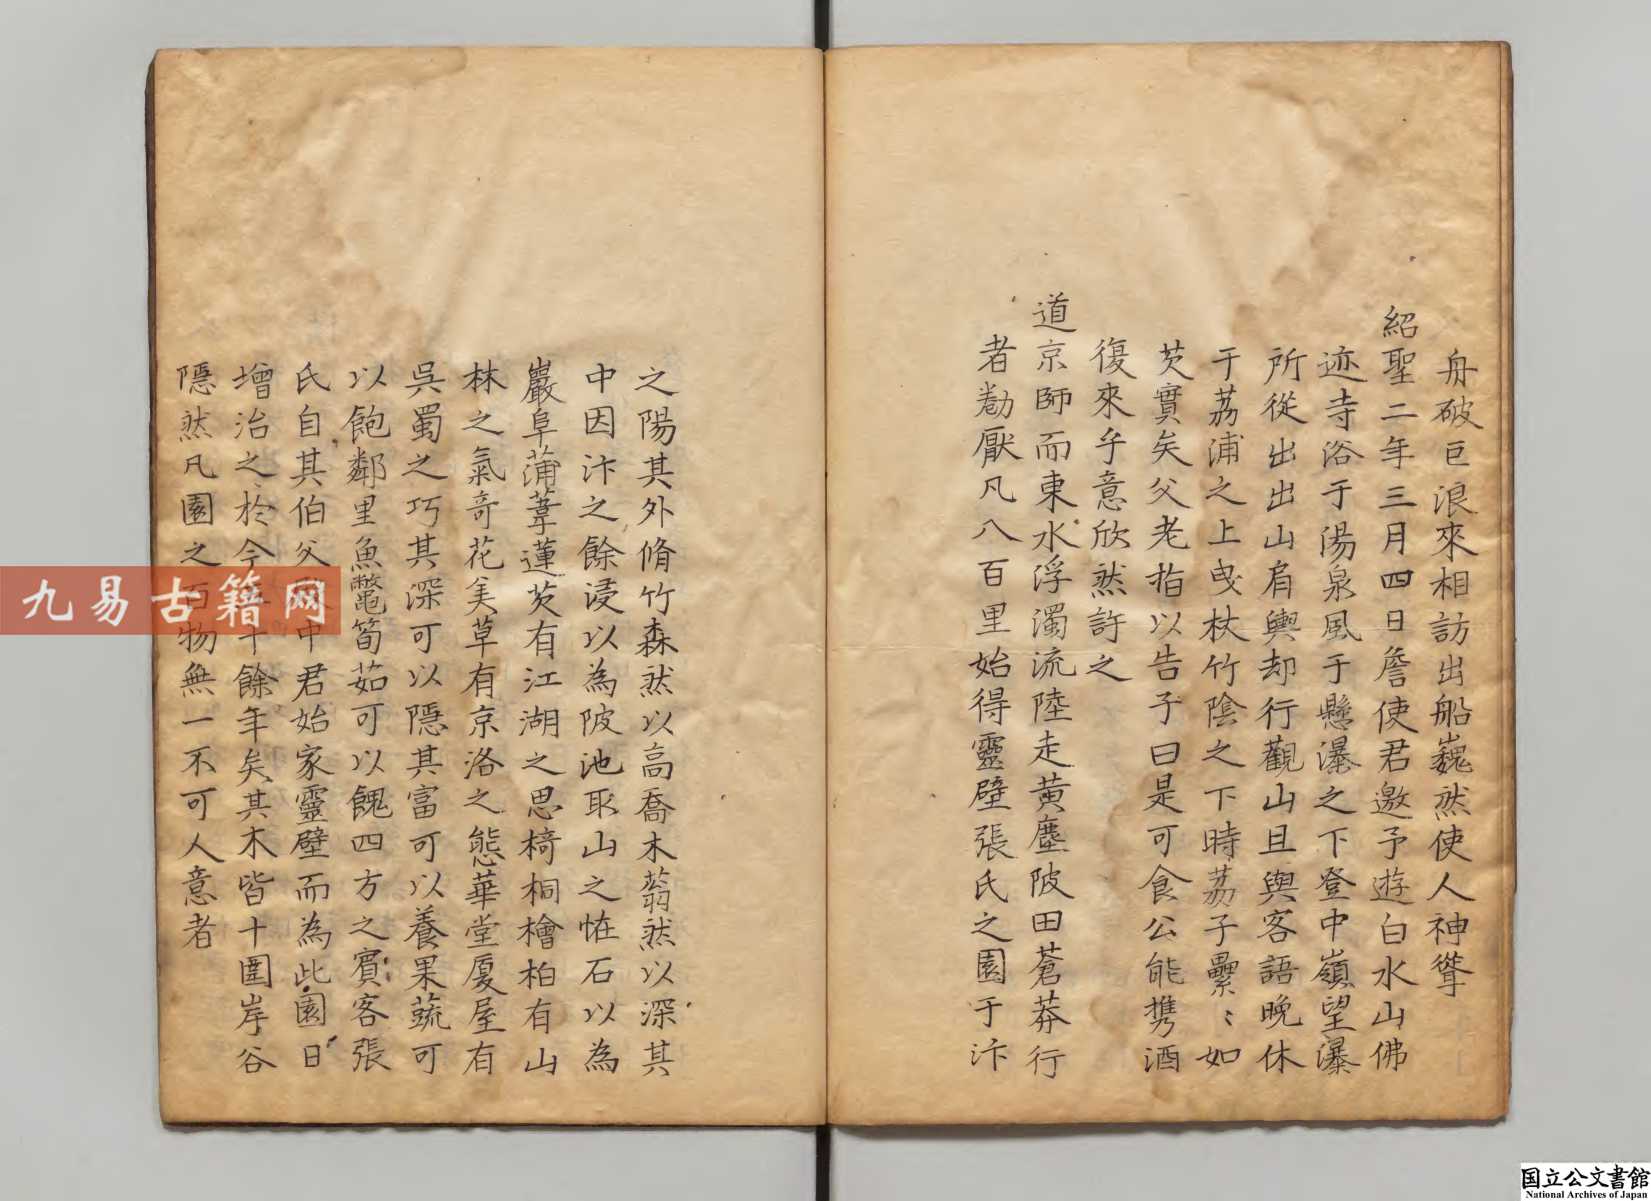 舟破巨浪來相訪出船巍然使人神聳
紹聖二年三月四日詹使君邀予遊白水山佛
迹寺浴于湯泉風于懸瀑之下登中嶺望瀑
所從出出山肩輿却行觀山且與客語晚休
于荔浦之上曳杖竹陰之下時荔子纍〻如
芡實矣父老指以告子曰是可食公能携酒
復來乎意欣然許之
道京師而東水浮濁流陸走黃塵陂田蒼莽行
者勌厭凡八百里始得靈壁張氏之園于汴
之陽其外脩竹森然以高喬木蓊然以深其
中因汴之餘浸以為陂池取山之恠石以為
巖阜蒲葦蓮芡有江湖之思椅桐檜柏有山
林之氣奇花美草有京洛之態華堂厦屋有
吳蜀之巧其深可以隱其富可以養果蔬可
以飽鄰里魚鼈筍茹可以餽四方之賓客張
氏自其伯父中君始家靈壁而為此園日
增治之於今十餘年矣其木皆十圍岸谷
隱然凡園之百物無一不可人意者
九易古籍网
国立公文書館
National Archives of Japan